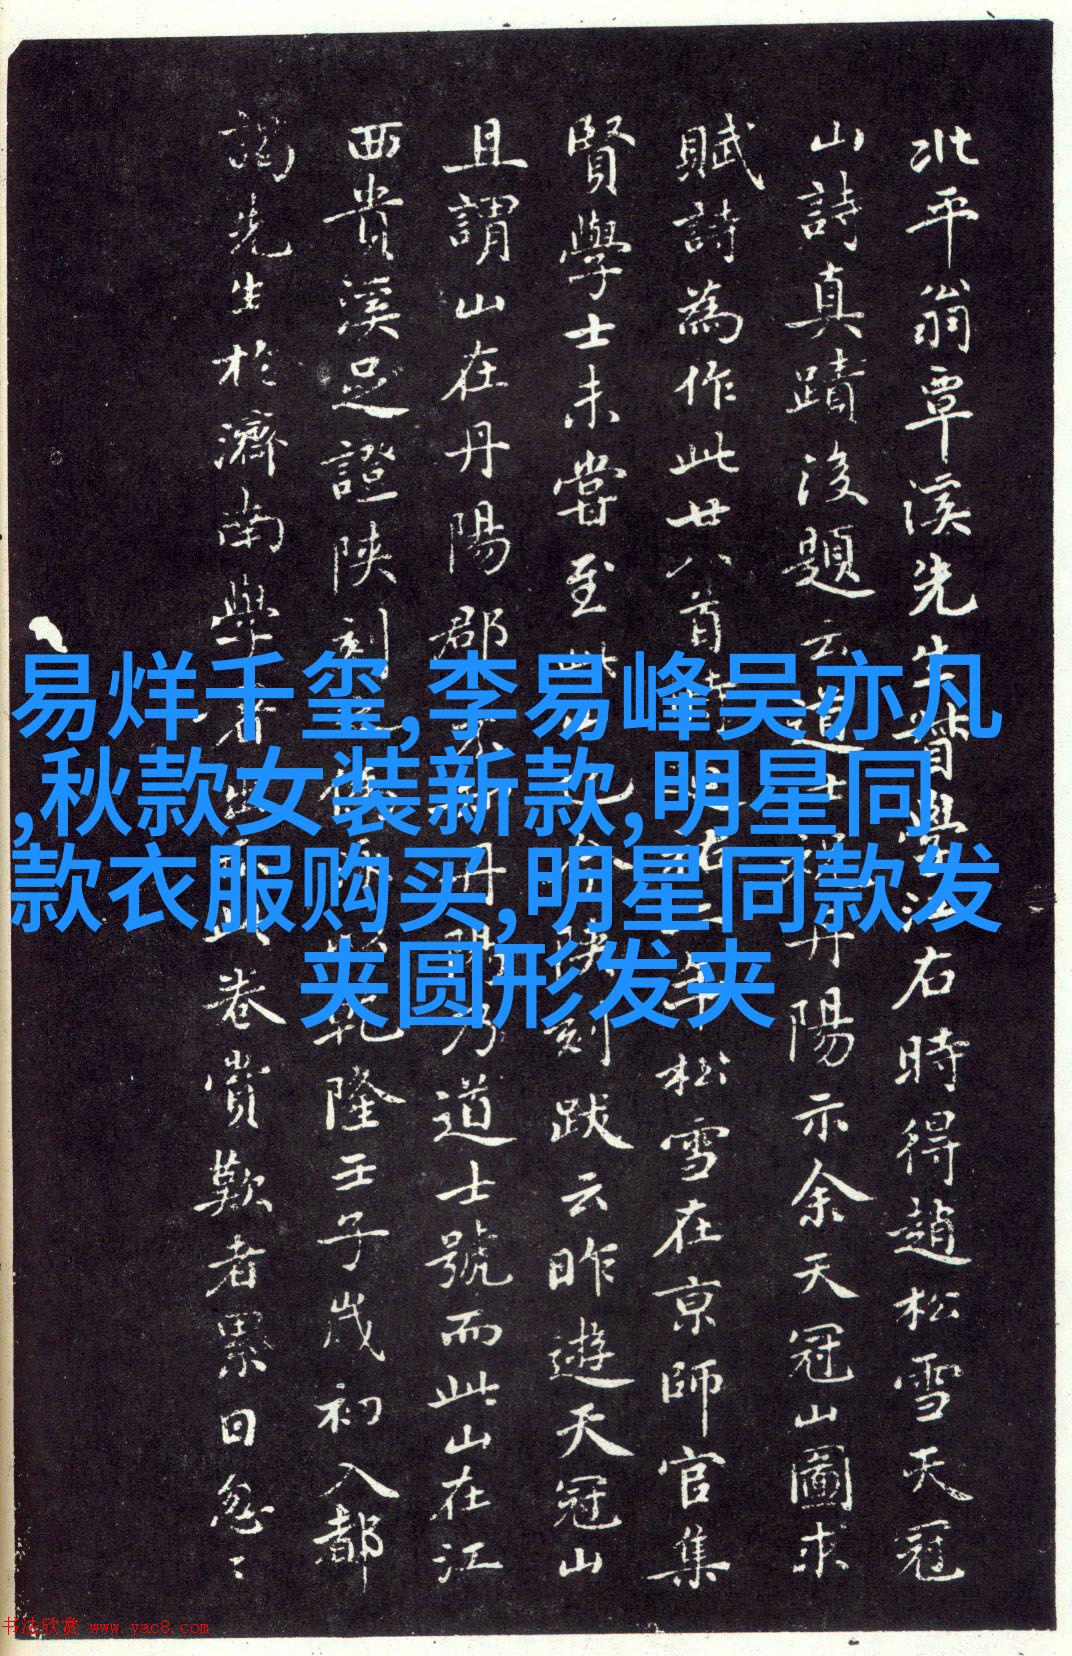 北平翁覃溪先生督學江右時得趙松雪天冠
山詩真蹟後題云道士祝丹陽示余天冠山圖求
賦詩為作此廿八首 松雪在京師官集
賢學士未嘗至此 陝刻跋云昨遊天冠山
且謂山在丹陽郡 丹陽乃道士號而此山在江
西貴溪足證陝刻 乾隆壬子歲初入都
謁先生於濟南學 此卷賞歎者累日忽〻
易烊千玺,李易峰吴亦凡
,秋款女装新款,明星同
款衣服购买,明星同款发
夹圆形发夹
书法欣赏 www.yac8.com